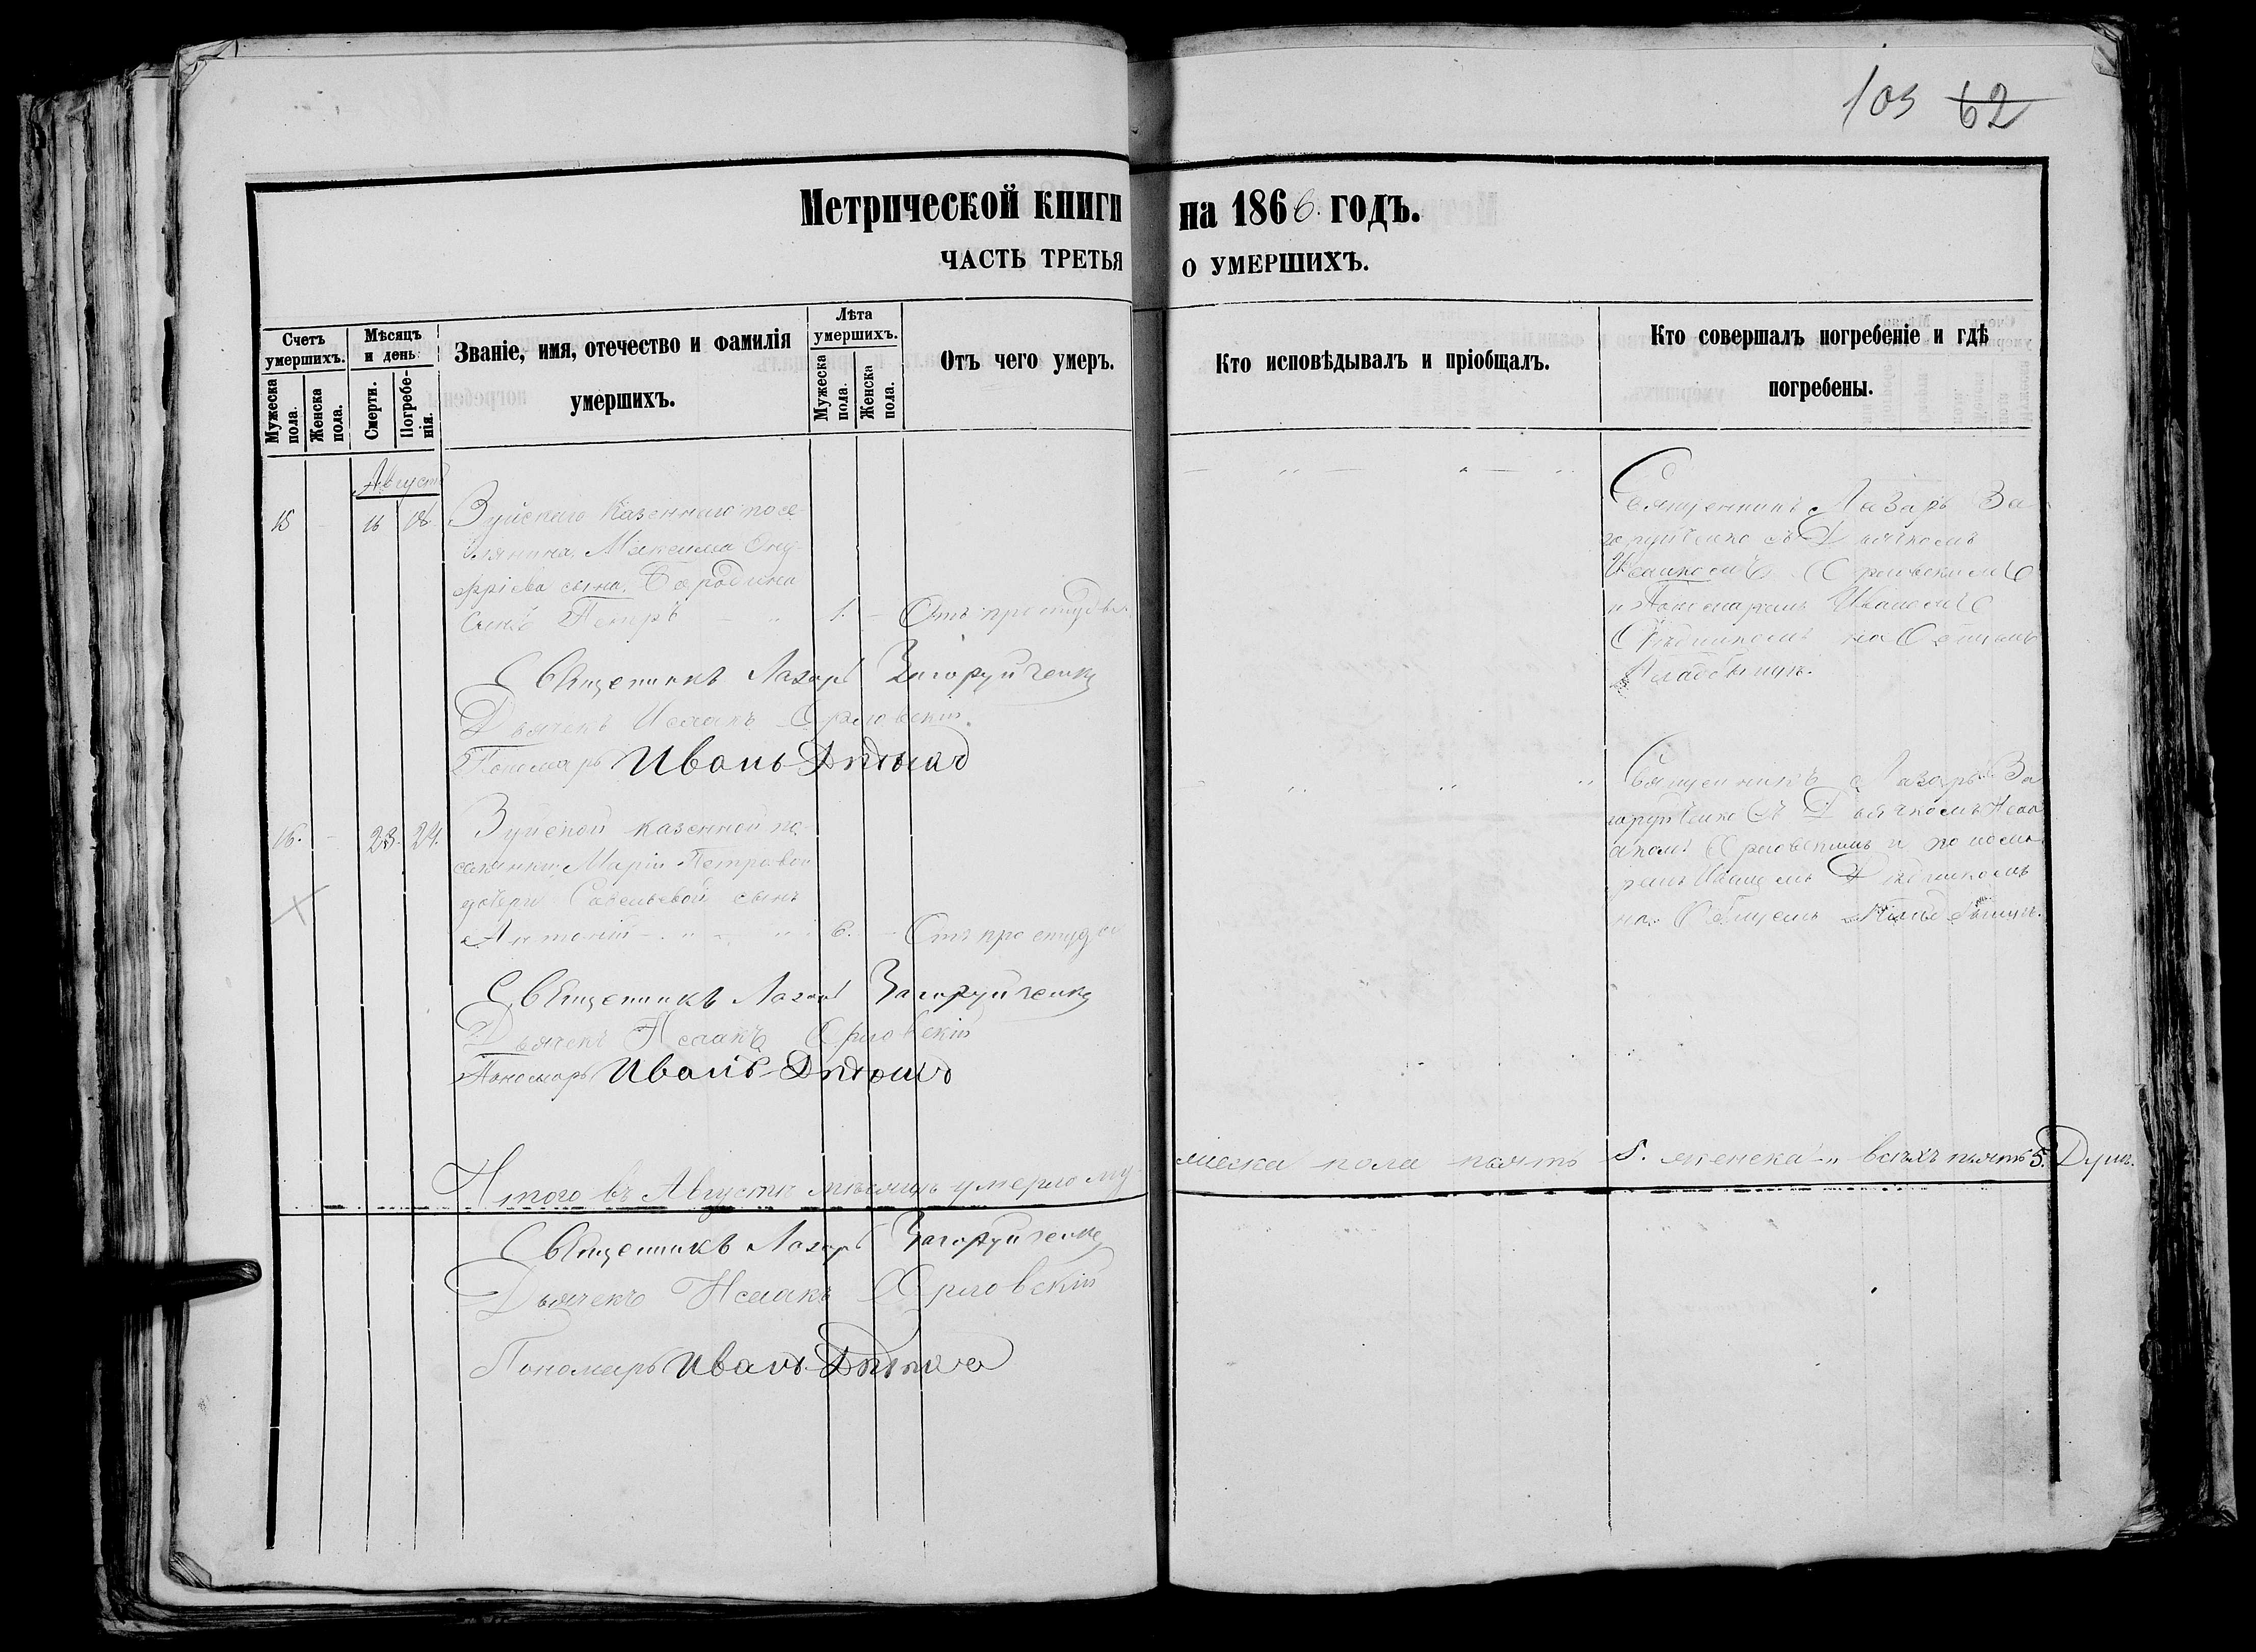 103 62
Метрической книги на 1866. годъ.
ЧАСТЬ ТРЕТЬЯ О УМЕРШИХЪ.
Счетъ умершихъ.
Мужеска пола.
Женска пола.
Мѣсяцъ и день
Смерти.
Погребенія.
Званіе, имя, отечество и фамилія
умершихъ.
Лѣта умершихъ.
Мужеска пола.
Женска пола.
Отъ чего умеръ.
Кто исповѣдывалъ и пріобщалъ.
Кто совершалъ погребеніе и гдѣ
погребены.
Августъ
15 - 16 18. Зуйскаго Казеннаго посе-
лянина Максима Ону-
фріева сына Бородина
сынъ Петръ 1. - Отъ простуды.
Священникъ Лазарь За
горуйченко съ Дьячкомъ
Исаакомъ Орловскимъ
и Пономаремъ Иваномъ
на Общемъ
Кладбищѣ.
Священникъ Лазарь Загоруйченко
Дьячекъ Исаакъ Орловскій.
Пономарь Иванъ
16. - 23. 24. Зуйской казенной по-
селянки Маріи Петровой
дочери Савельевой сынъ
Антоній 6. - Отъ простуды
Священникъ Лазарь За
горуйченко съ Дьячкомъ Иса
акомъ Орловскимъ и понома-
ремъ Иваномъ
на Общемъ Кладбищѣ.
Священникъ Лазарь Загоруйченко
Дьячекъ Исаакъ Орловскій
Пономарь Иванъ
Итого въ Августѣ мѣсяцѣ умерло му-
жеска пола пять 5. женска " всѣхъ пять 5. Душъ.
Священникъ Лазарь Загоруйченко
Дьячекъ Исаакъ Орловскій
Пономарь Иванъ